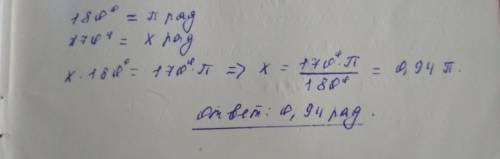 180° = π рад
170° = x рад
x · 180° = 170° · π => x = 170° · π / 180° = 0,94 π.
Ответ: 0,94 рад.